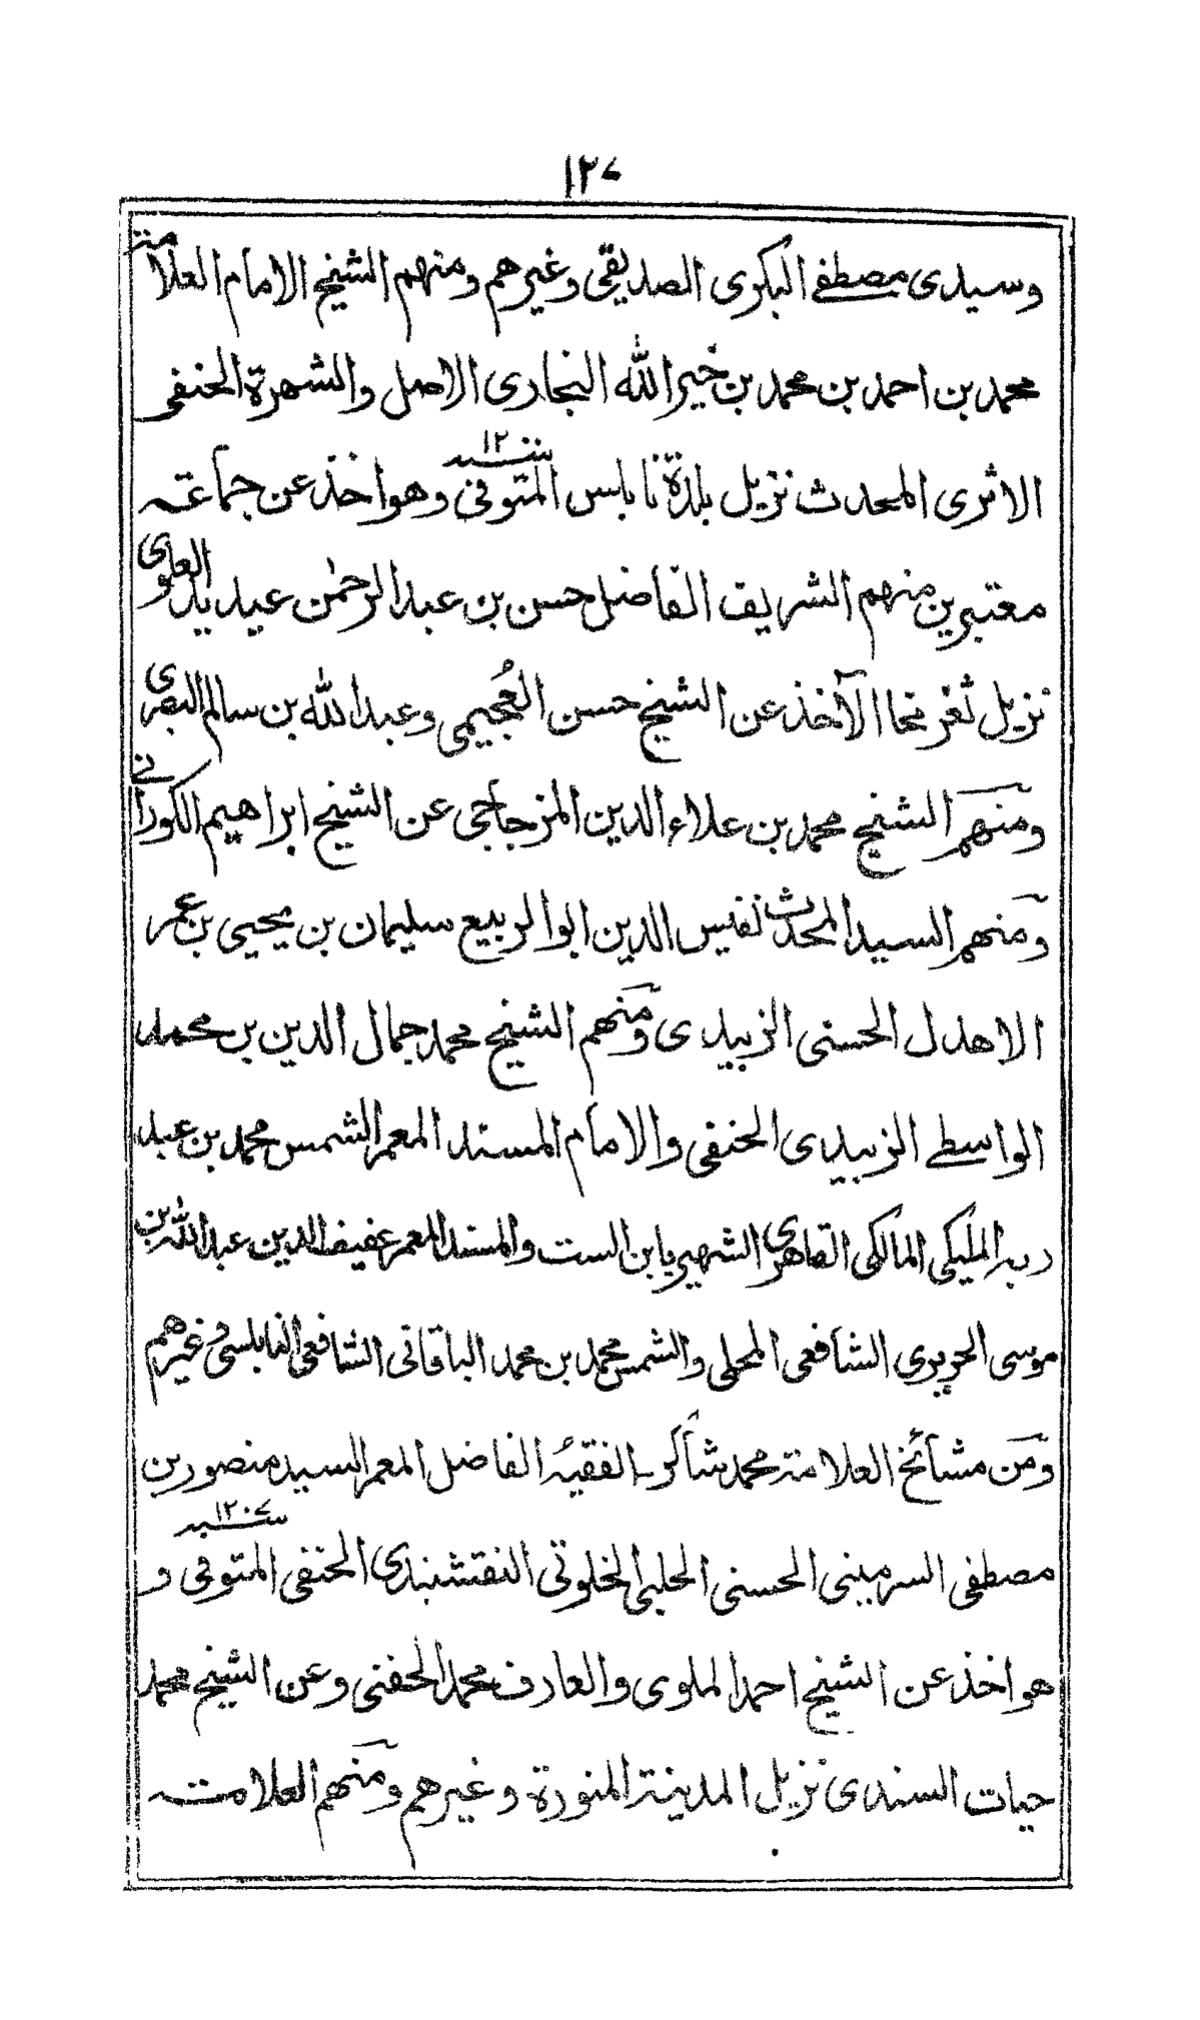 ١٢٧
وسيدى مصطفے البكرى الصديقى وغيرهم ومنهم الشيخ الامام العلامة
محمد بن احمد بن محمد بن خير الله البخارى الاصل والشهرة الحنفى
الاثرى المحدث نزيل بلدة نابلس المتوفى ١٢٠٠ وهو اخذ عن جماعة
معتبرين منهم الشريف الفاضل حسن بن عبد الرحمٰن عيديد العلوى
نزيل ثغر مخا الآخذ عن الشيخ حسن العُجيمى وعبد الله بن سالم البصرى
ومنهم الشيخ محمد بن علاء الدين المزجاجى عن الشيخ ابراهيم الكورانے
ومنهم السيد المحدث نفيس الدين ابو الربيع سليمان بن يحيى بن عمر
الاهدل الحسنى الزبيدى ومنهم الشيخ محمد جمال الدين بن محمد
الواسطے الزبيدى الحنفى والامام المسند المعمر الشمس محمد بن عبد
ربه المليكى المالكى القاهرى الشهير بابن الست والمسند المعمر عفيف الدين عبد الله بن
موسى الحريرى الشافعى المحلى والشمس محمد بن محمد الباقانى الشافعى النابلسى وغيرهم
ومن مشائخ العلامة محمد شاكر الفقيهُ الفاضل المعمر السيد منصور بن
مصطفى السرمينى الحسنى الحلبى الخلوتى النقشبندى الحنفى المتوفى سنه ١٢٠٧ و
هو اخذ عن الشيخ احمد الملوى والعارف محمد الحفنى وعن الشيخ محمد
حيات السندى نزيل المدينة المنورة وغيرهم ومنهم العلامة